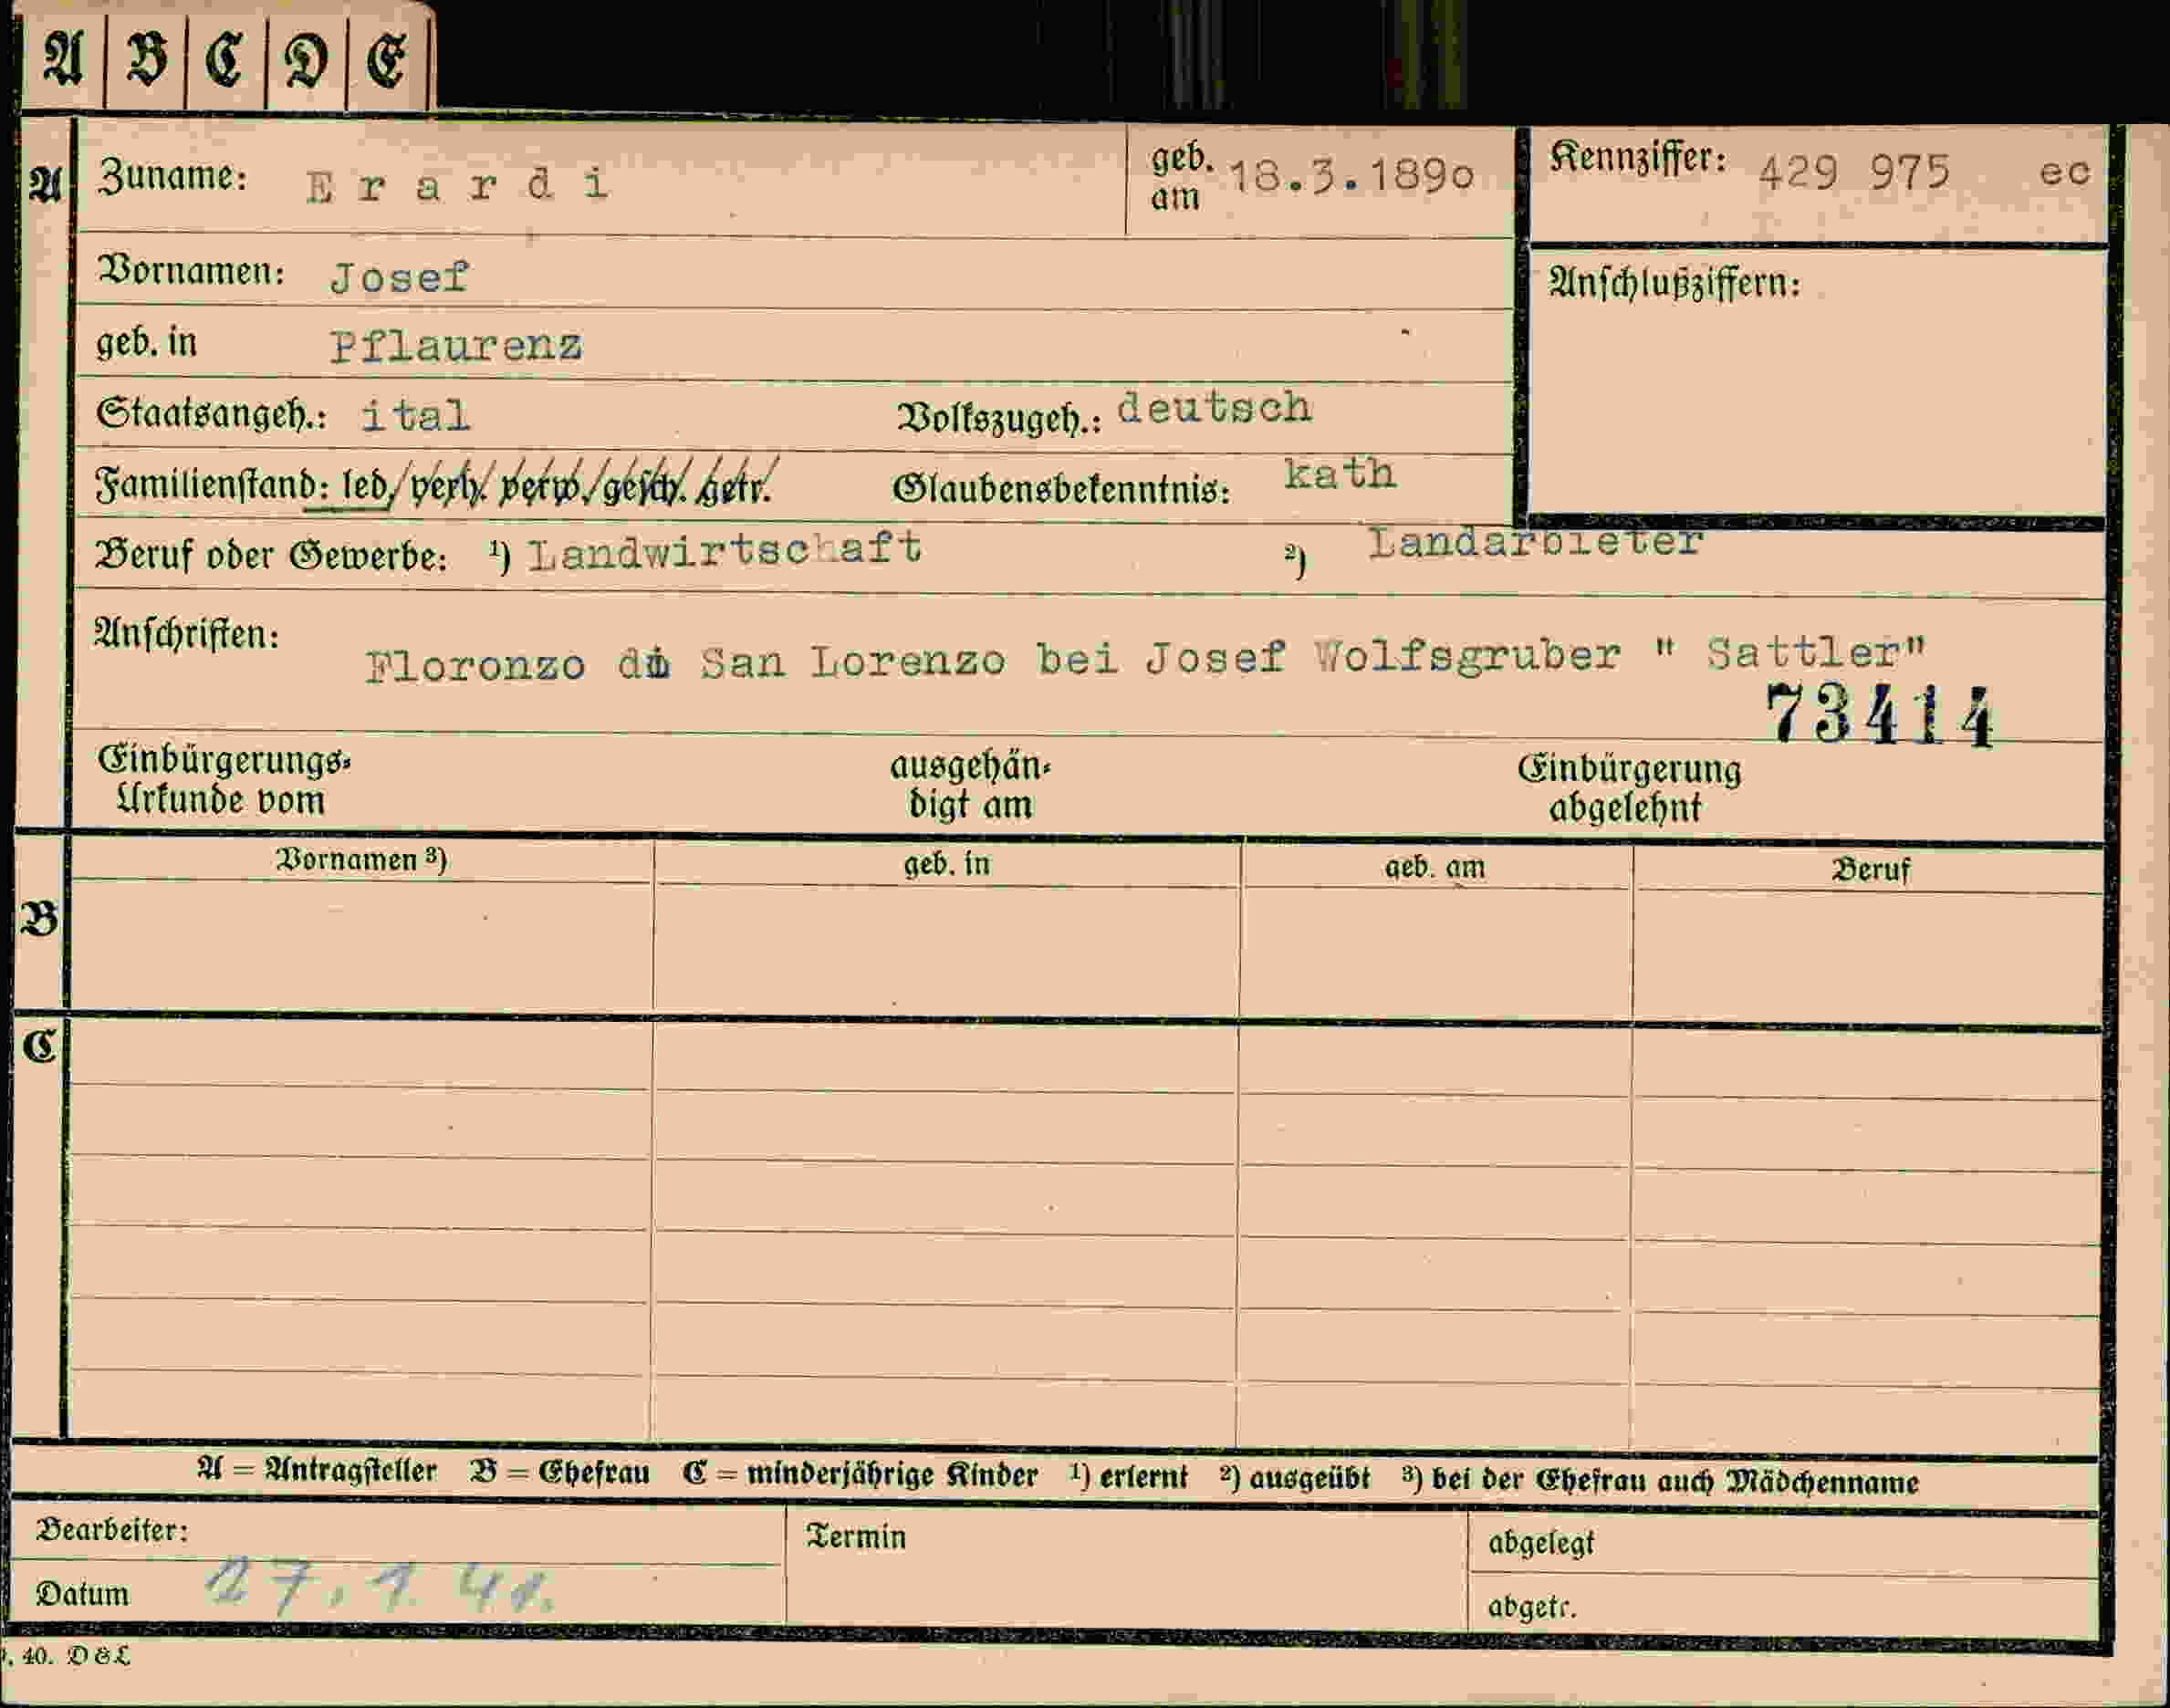 A B C D E
A Zuname: Erardi geb. am 18.3.189o Kennziffer: 429 975 ec
Vornamen: Josef Anschlußziffern:
geb. in Pflaurenz
Staatsangeh.: ital Volkszugeh.: deutsch
Familienstand: led/verh. verw./gesch. getr. Glaubensbekenntnis: kath
Beruf oder Gewerbe: 1) Landwirtschaft 2) Landarbieter
Anschriften:
Floronzo di San Lorenzo bei Josef Wolfsgruber " Sattler"
73414
Einbürgerungs- ausgehän- Einbürgerung
Urkunde vom digt am abgelehnt
Vornamen 3) geb. in geb. am Beruf
B
C
A = Antragsteller B = Ehefrau C = minderjährige Kinder 1) erlernt 2) ausgeübt 3) bei der Ehefrau auch Mädchenname
Bearbeiter: Termin abgelegt
Datum 27.1.41. abgetr.
40. D & L